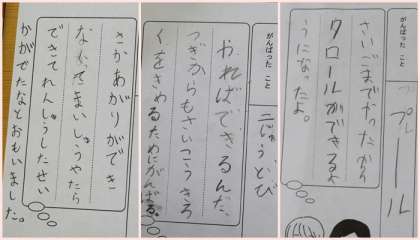 さかあがりができ
なくてまいしゅうやたら
できてれんしゅうしたせい
かがでたなとおもいました。
がんばった こと
二じゅうとび
やればできるんだ。
つぎからもさいこうきろ
くをきめるためにがんばる。
がんばった こと
プール
さいごまでやったから
クロールができるよ
うになったよ。